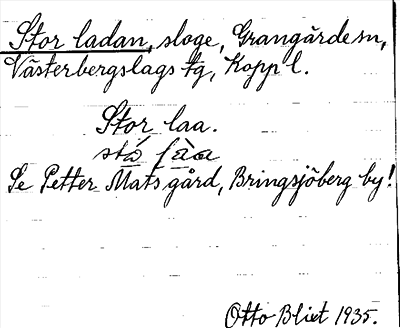 Stor ladan, sloge, Grangärde sn,
Västerbergslags tg, Kopp l.
Stor laa.
stó làa
Se Petter Mats gård, Bringsjöberg by!
Otto Blixt 1935.